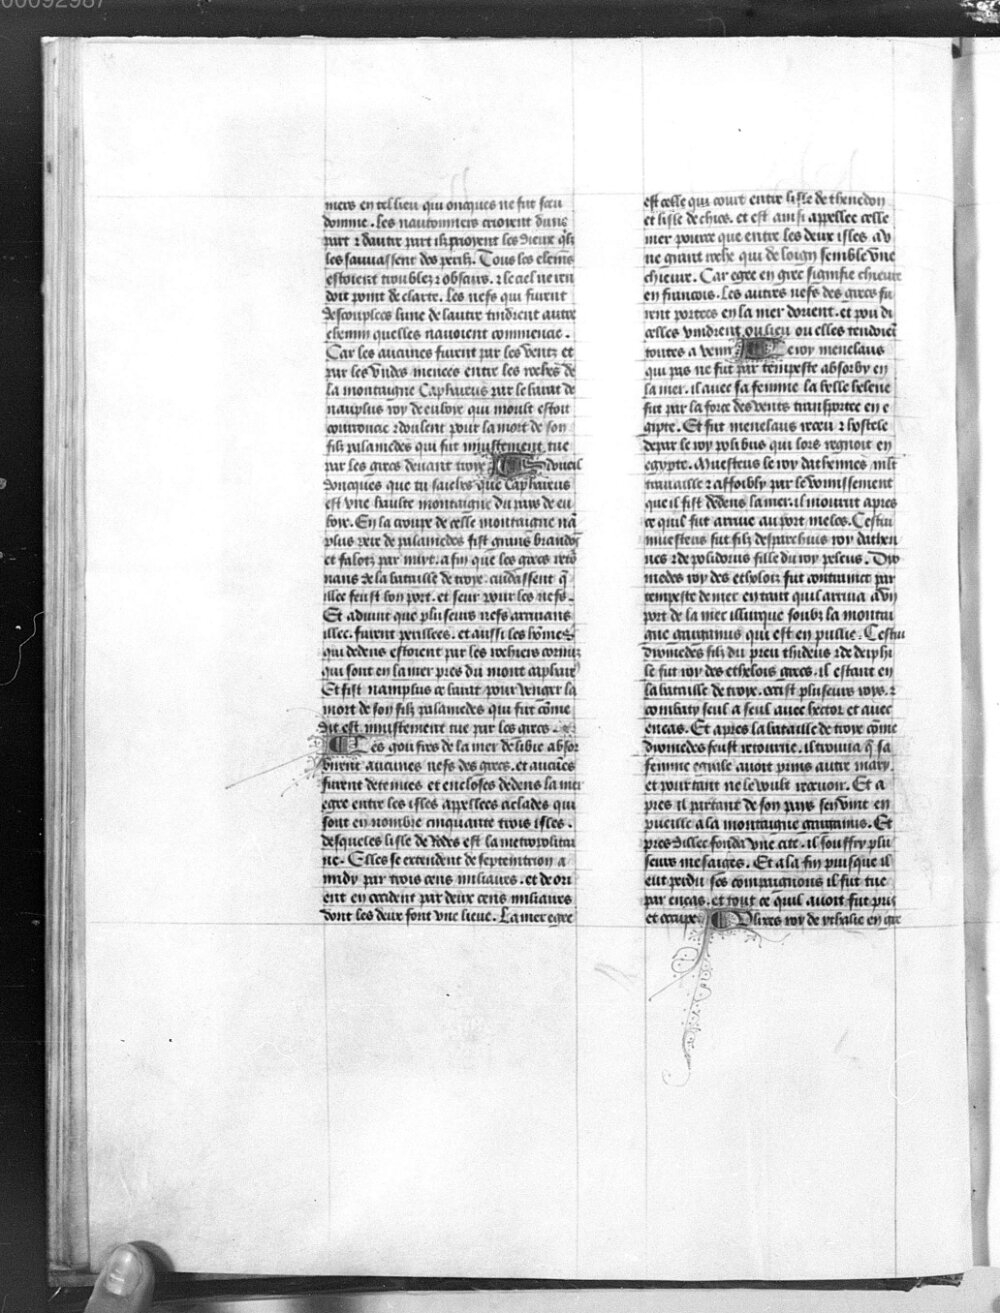 00092987
mers en tel lieu qui oncques ne fut seu
donme. les nautonniers crioient dune
part ⁊ dautre part ilz prioyent les dieux qlz
les sauuassent des perilz. Tous les elemẽs
estoient troublez ⁊ obscurs. ⁊ le ciel ne ren
doit point de clarte. Les nefs qui furent
descouplees lune de lautre tindrent autre
chemin quelles nauoient commencie.
Car les aucunes furent par les ventz et
par les vndes menees entre les roches de
la montaigne Caphareus par le barat de
nauplus roy de euboie qui moult estoit
courroucie ⁊ doulent pour la mort de son
filz palamedes qui fut iniustement tue
par les grecs deuant troye doueil
doncques que tu saiches que Caphareus
est vne haulte montaigne du pays de eu
boye. En la croupe de celle montaigne na
plus pere de palamedes fist grans brandõs
et falotz par nuyt. a fin que les grecs reto
nans de la bataille de troye. cuidassent q̃
illec feust bon port. et seur pour les nefs.
Et aduint que pluseurs nefs arriuans
illec. furent perillees. et aussi les hõmes
qui dedens estoient par les rochiers cornuz
qui sont en la mer pres du mont caphare
Et fist namplus ce barat pour venger la
mort de son filz palamedes qui fut cõme
dit est iniustement tue par les grecs.
Les gouffres de la mer de libie absor
birent aucunes nefs des grecs. et aucũes
furent detenues et encloses dedens la mer
egee entre les isles appellees ciclades qui
sont en nombre cinquante trois isles.
desqueles lisle de rodes est la metropolitai
ne. Elles se extendent de septemtrion a
midy par trois cens miliaires. et de ori
ent en occident par deux cens miliaires
dont les deux font vne lieue. La mer egee
est celle qui court entre lisle de thenedon
et lisle de chies. et est ainsi appellee celle
mer pource que entre les deux isles a v
ne grant roche qui de loing semble vne
chieure. Car egee en grec signifie chieure
en francois. Les autres nefs des grecs fu
rent portees en la mer dorient. et pou di
celles vindrent ou lieu ou elles tendoiẽt
toutes a venir Le roy menelaus
qui pas ne fut par tempeste absorby en
la mer. il auec sa femme la belle helene
fut par la force des vents transportee en e
gipte. Et fut menelaus receu ⁊ hostele
depar le roy polibus qui lors regnoit en
egypte. Muesteus le roy dathennes mlt
trauaille ⁊ affoibly par le vomissement
que il fist dedens la mer. il mourut apres
ce quil fut arriue au port melos. Cestui
muesteus fut filz desparchius roy dathen
nes ⁊ de polidorus fille du roy peleus. Dyo
medes roy des etholois fut contrainct par
tempeste de mer en tant quil arriua a vn
port de la mer illirique soubz la montai
gne garganus qui est en puille. Cestui
dyomedes filz du preu thideus ⁊ de deiphi
le fut roy des etholois grecs. il estant en
la bataille de troye. occist pluseurs roys. ⁊
combaty seul a seul auec hector et auec
eneas. Et apres la bataille de troye cõme
dyomedes feust retourne. il trouua q̃ sa
femme egiale auoit prins autre mary.
et pourtant ne le voult receuoir. Et a
pres il partant de son pays sen vint en
pueille a la montaigne garganus. Et
pres dillec fonda vne cite. il souffry plu
seurs mesaises. Et a la fin puisque il
eut perdu ses compaignons il fut tue
par eneas. et tout ce quil auoit fut pris
et occupe Vlixes roy de ythalie en gre